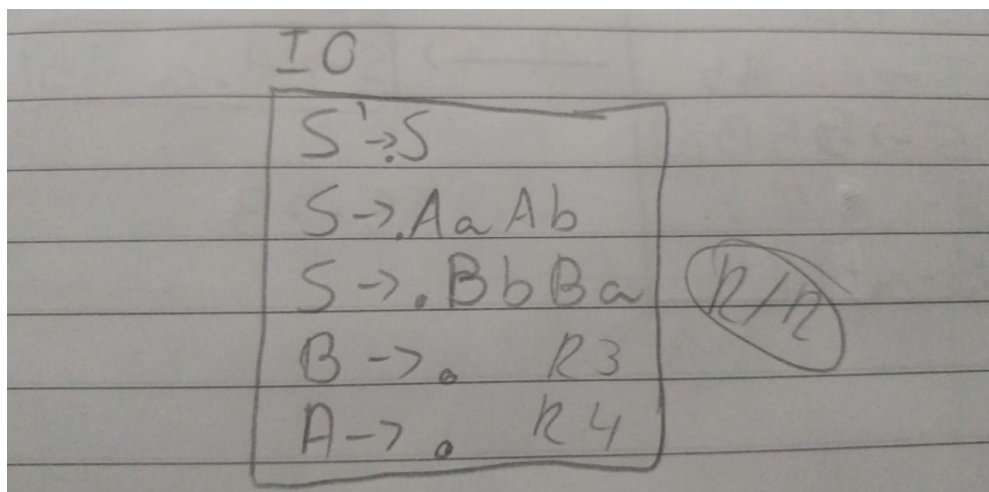 I0
S'->.S
S->.AaAb
S->.BbBa
R/R
B->. R3
A->. R4